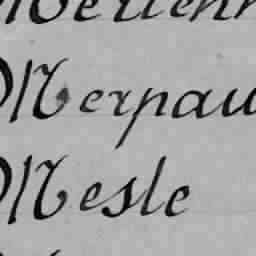 Merpau
Mesle